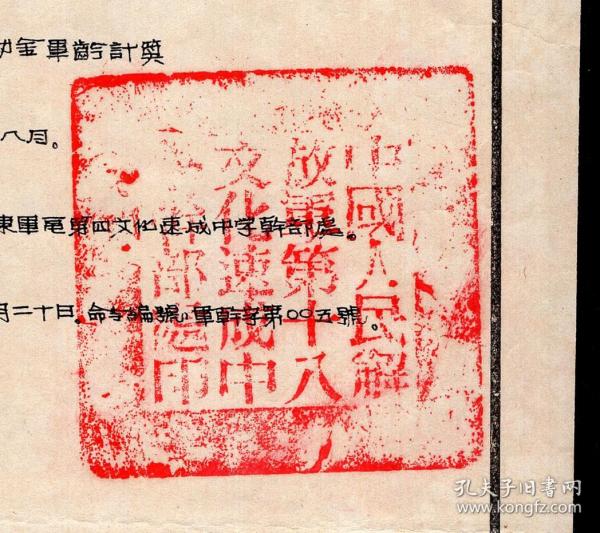 金軍齡計算
八月。
東軍區第四文化速成中学幹部處。
月二十日。命令編號軍幹字第00五號。
中國人民解
放軍第十八
文化速成中
學幹部處印
孔夫子旧书网
www.kongfz.com